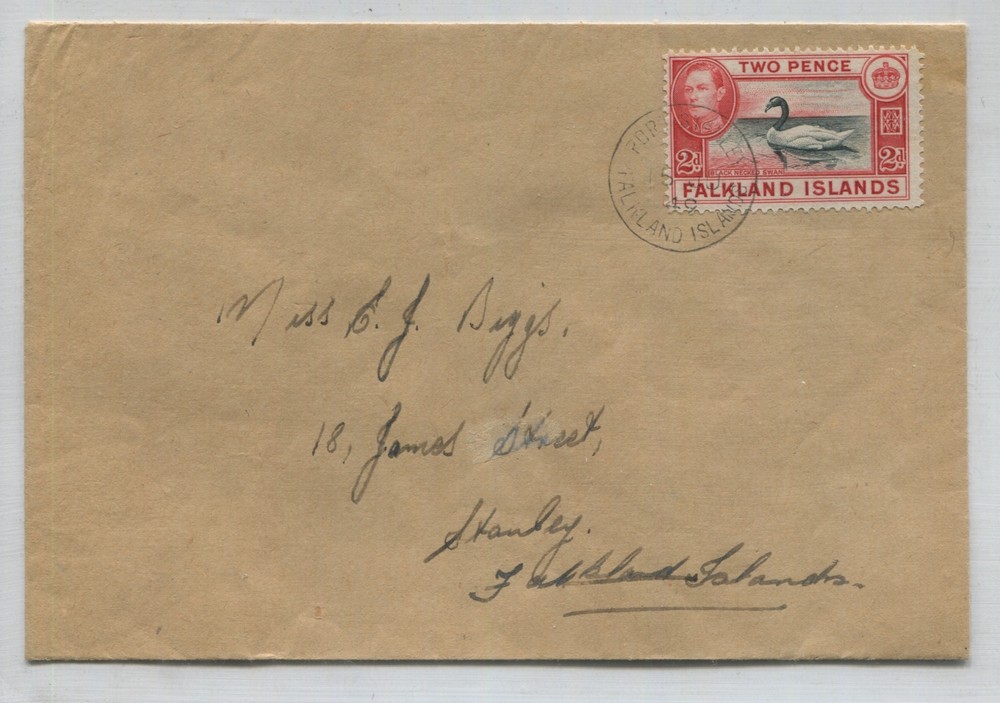 TWO PENCE
2d 2d
BLACK NECKED SWAN
FALKLAND ISLANDS
FALKLAND ISLANDS
Miss E. J. Biggs,
18, James Street,
Stanley.
Falkland Islands.